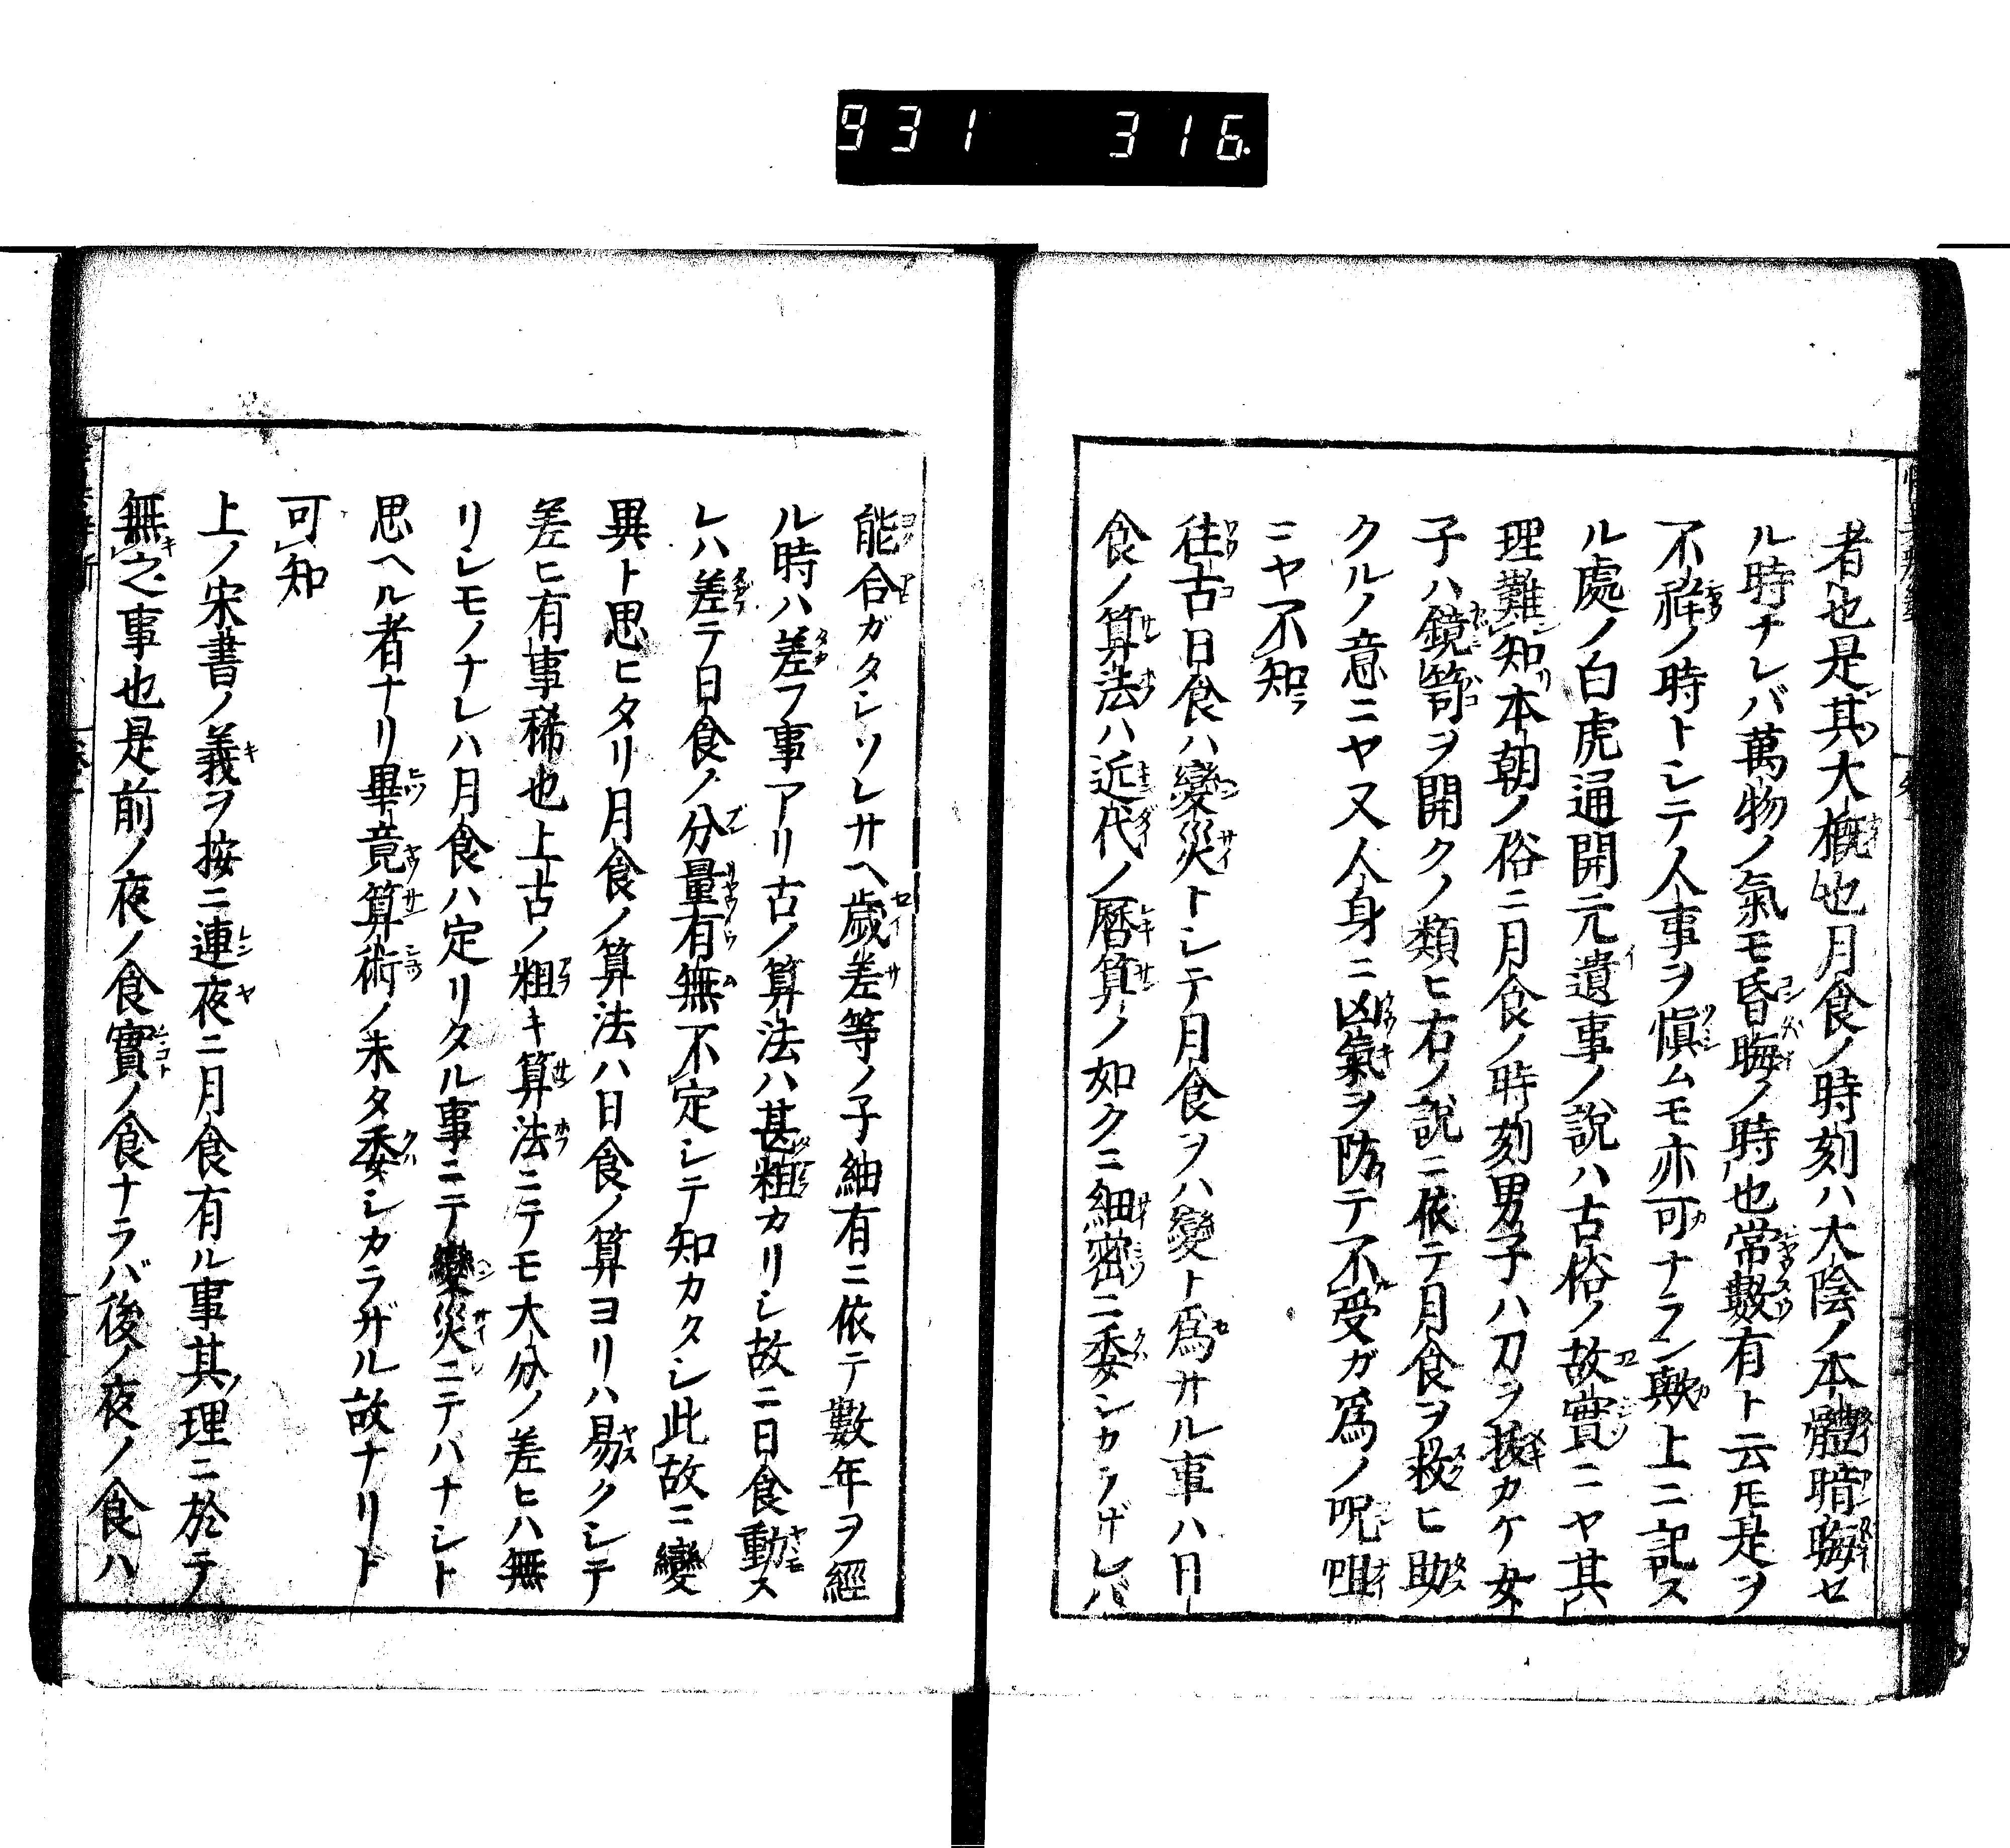 931 316
者也是其大概也月食ノ時刻ハ大陰ノ本體暗晦セ
ル時ナレバ萬物ノ氣モ昏晦ノ時也常數有ト云モ是ヲ
不祥ノ時トシテ人事ヲ愼ムモ亦可ナラン歟上ニ記ス
ル處ノ白虎通開元遺事ノ說ハ古俗ノ故實ニヤ其
理難知本朝ノ俗ニ月食ノ時刻男子ハ刀ヲ拔カケ女
子ハ鏡笥ヲ開クノ類ヒ右ノ說ニ依テ月食ヲ救ヒ助
クルノ意ニヤ又人身ニ凶氣ヲ防テ不受ガ爲ノ呪咀
ニヤ不知
往古日食ハ變災トシテ月食ヲハ變ト爲サル事ハ日
食ノ算法ハ近代ノ曆算ノ如クニ細密ニ委シカラザレバ
能合ガタシソレサヘ歲差等ノ子細有ニ依テ數年ヲ經
ル時ハ差フ事アリ古ノ算法ハ甚粗カリシ故ニ日食動ス
レハ差テ日食ノ分量有無不定シテ知カタシ此故ニ變
異ト思ヒタリ月食ノ算法ハ日食ノ算ヨリハ易クシテ
差ヒ有事稀也上古ノ粗キ算法ニテモ大分ノ差ヒハ無
リシモノナレハ月食ハ定リタル事ニテ變災ニテハナシト
思ヘル者ナリ畢竟算術ノ未タ委シカラザル故ナリト
可知
上ノ宋書ノ義ヲ按ニ連夜ニ月食有ル事其理ニ於テ
無之事也是前ノ夜ノ食實ノ食ナラバ後ノ夜ノ食ハ